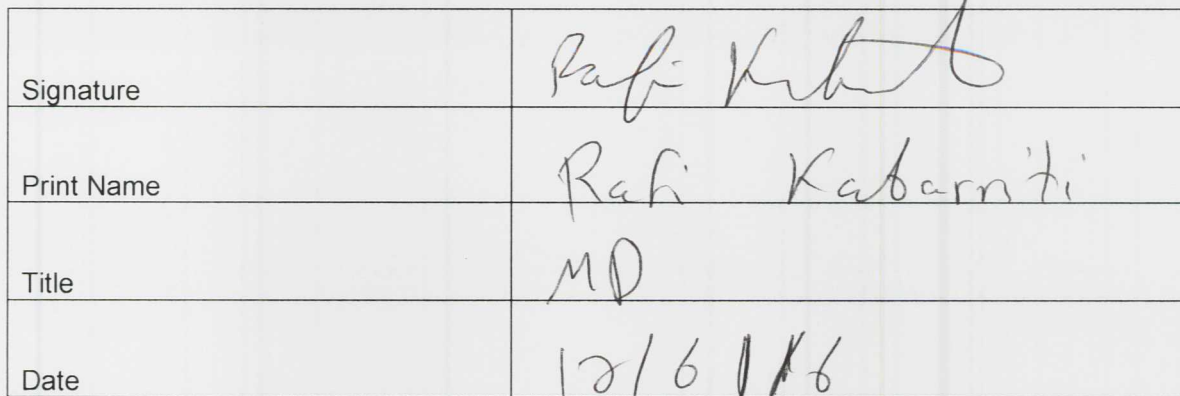 Signature Rafi K
Print Name Rafi Kabarriti
Title MD
Date 12/6/16